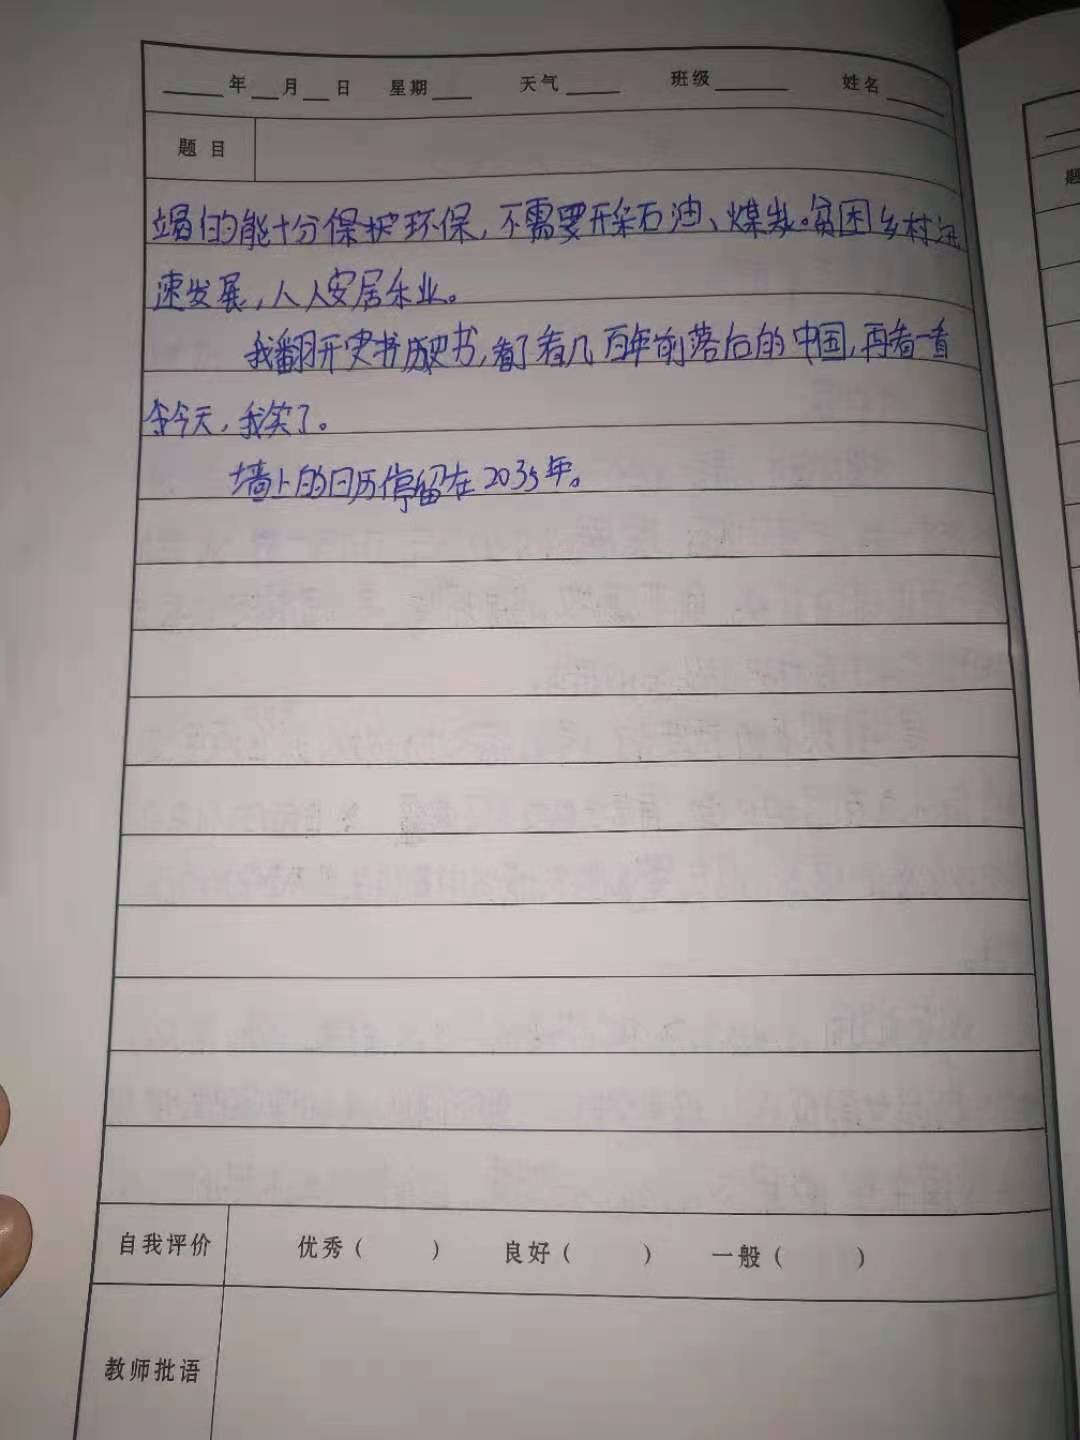 年 月 日 星期 天气 班级 姓名
题 目
竭的能十分保护环保,不需要开采石油、煤炭。贫困乡村迅
速发展,人人安居乐业。
我翻开史书历史书,看了看几百年前落后的中国,再看一看
今今天,我笑了。
墙上的日历停留在2035年。
自我评价 优秀( ) 良好( ) 一般( )
教师批语